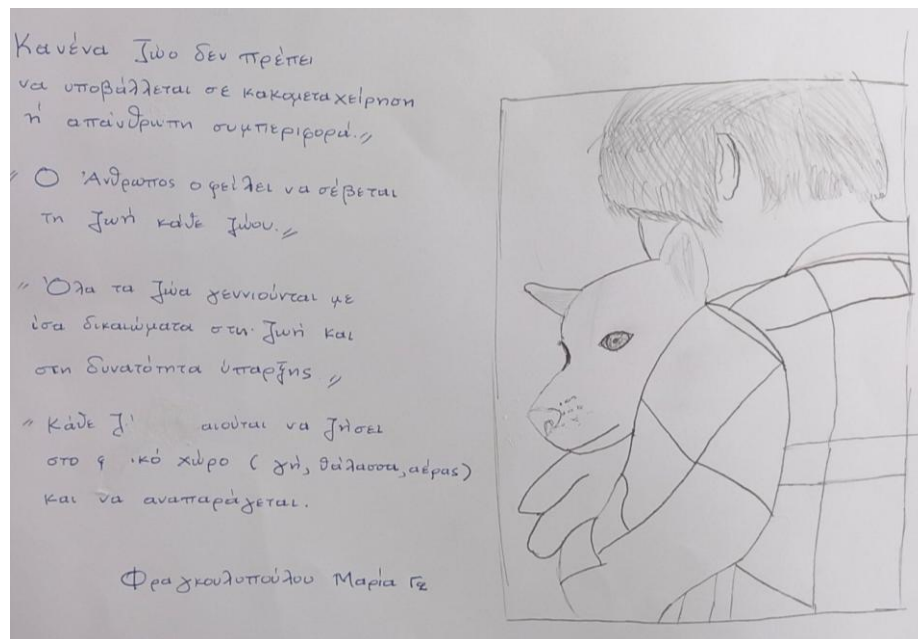 Κανένα ζώο δεν πρέπει
να υποβάλλεται σε κακομεταχείρηση
ή απάνθρωπη συμπεριφορά.〃
〃 Ο Άνθρωπος οφείλει να σέβεται
τη ζωή κάθε ζώου.〃
〃 Όλα τα ζώα γεννιούνται με
ίσα δικαιώματα στη ζωή και
στη δυνατότητα ύπαρξης 〃
〃 Κάθε να ζήσει
στο χώρο (γή, θάλασσα, αέρας)
και να αναπαράγεται.
Φραγκουλοπούλου Μαρία